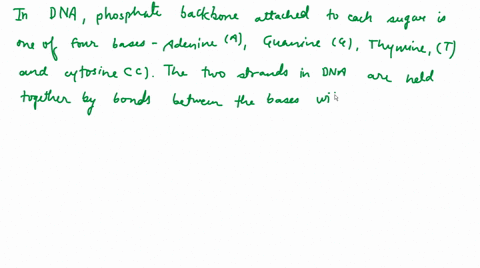 In DNA, phosphate backbone attached to each sugar is
one of four bases - Adenine (A), Guanine (G), Thymine, (T)
and cytosine (C). The two strands in DNA are held
together by bonds between the bases wi